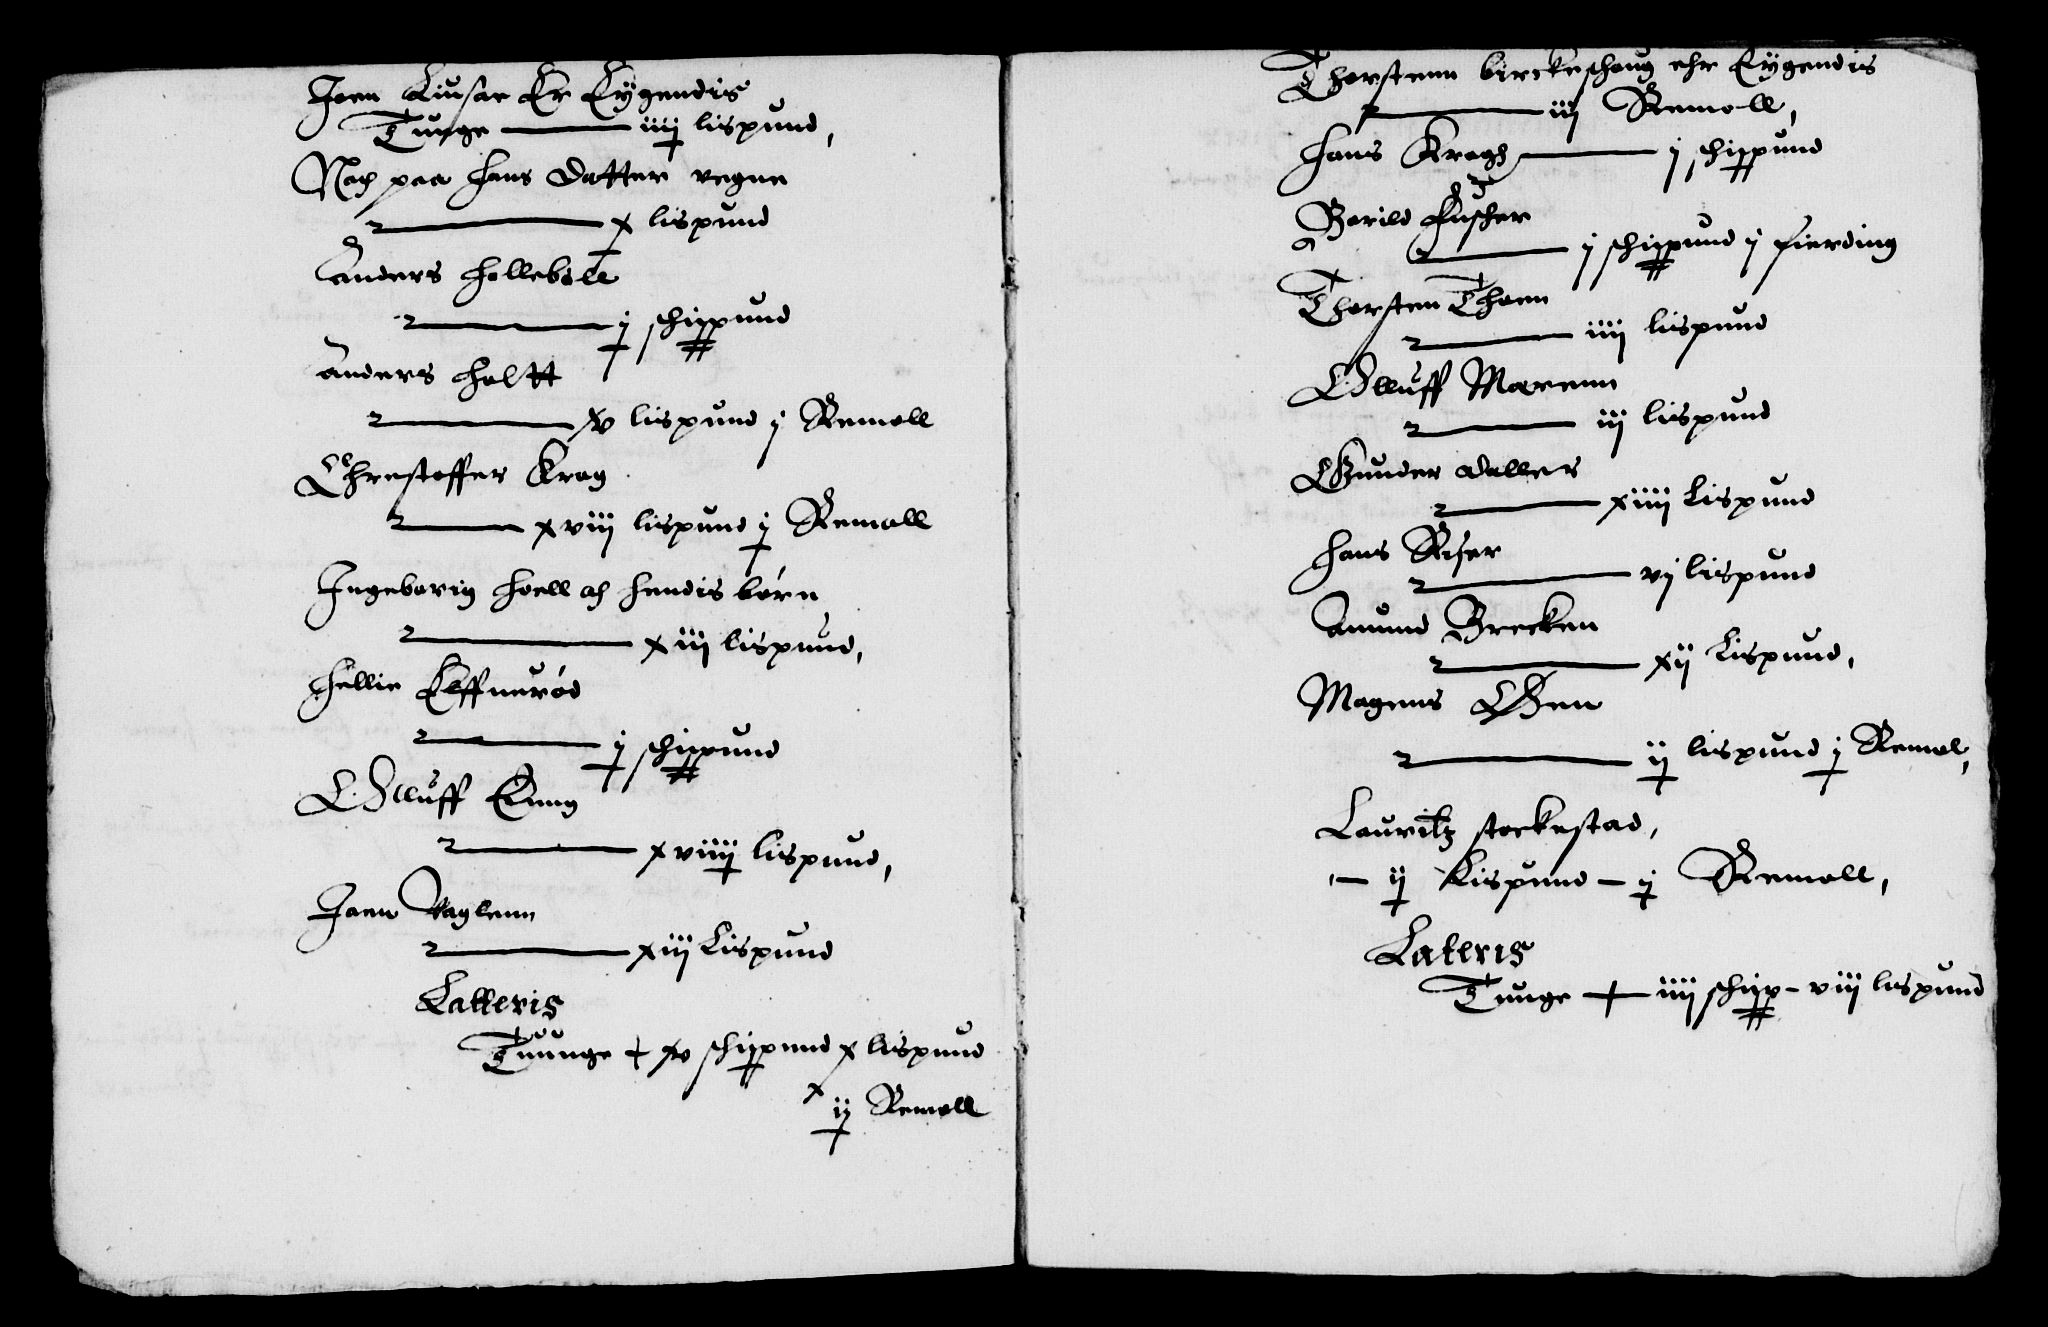 Joen Liusae Er Eÿgendis
Tunge — iiij lispund,
Noch paa hans datter vegne
— x lispund
Anders hollebøll
— j schippund
Anders holtt
— xv lispund j Remoll
Chrestoffer Krog
— xviij lispund j Remoll
Ingeborig hoell och hendis børn
— xiij lispund,
hellie Elffnerød
— j schippund
Olluff Eung
— xviiij lispund,
Joen Vaglenn
— xiij Lispund
Latteris
Tuunge + xv schippund x lispund
ij Remoll
Thorstenn birckeshoug ehr Eÿgendis
— iij Remoll,
hans Kragh — j schippund
Borild Fuscher
— j schippund j fierding
Thorsten Thoen
— iiij lispund
Olluff Morenn
— iij lispund
Gunder daller
— xiiij Lispund
hans Riser
— vj lispund
Amund Brecken
— xij Lispund,
Mogens Øen
— ij lispund j Remol,
Lauritz stockestad,
— ij Lispund — j Remoll,
Lateris
Tunge + iiij schipp – viij lispund